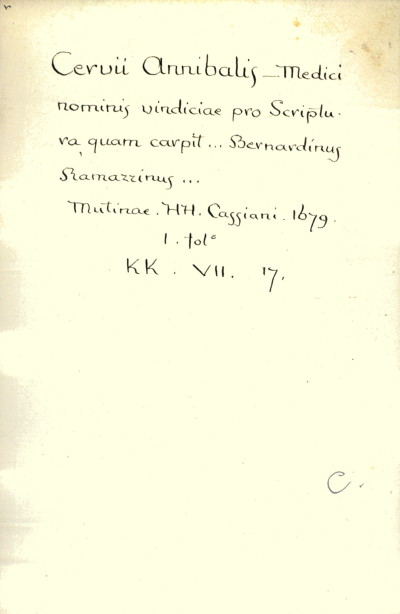 Cervii Annibalis — Medici
nominis vindiciae pro Scriptu-
ra quam carpit ... Bernardinus
Ramazzinus ...
Mutinae. HH. Cassiani. 1679.
1. fol°
KK. VII. 17.
C.